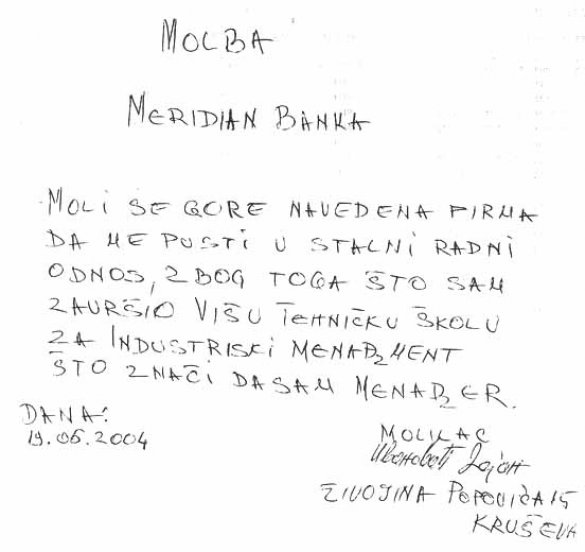 MOLBA
MERIDIAN BANKA
MOLI SE GORE NAVEDENA FIRMA
DA ME PUSTI U STALNI RADNI
ODNOS, ZBOG TOGA ŠTO SAM
ZAVRŠIO VIŠU TEHNIČKU ŠKOLU
ZA INDUSTRISKI MENADŽMENT
ŠTO ZNAČI DA SAM MENADŽER.
DANA:
19.05.2004
MOLILAC
ŽIVOJINA POPOVIĆA 15
KRUŠEVA